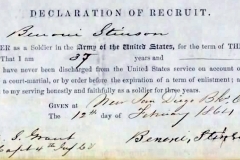 DECLARATION OF RECRUIT.
Benoni Stinson
ER as a Soldier in the Army of the United States, for the term of THR
That I am 37 years and
have never been discharged from the United States service on account of
a court-martial, or by order before the expiration of term of enlistment; and
to my serving honestly and faithfully as a soldier for three years.
GIVEN AT New San Diego
The 12th day of February 1864
Grant
Capt 4th Inf
Benoni